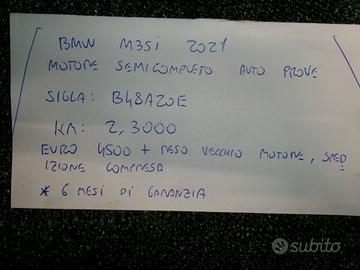 BMW M35i 2021
MOTORE SEMICOMPLETO AUTO PROVE
SIGLA: B48A20E
KM: 2,3000
EURO 4500 + RESO VECCHIO MOTORE, SPED
IZIONE COMPRESA
* 6 MESI DI GARANZIA
subito